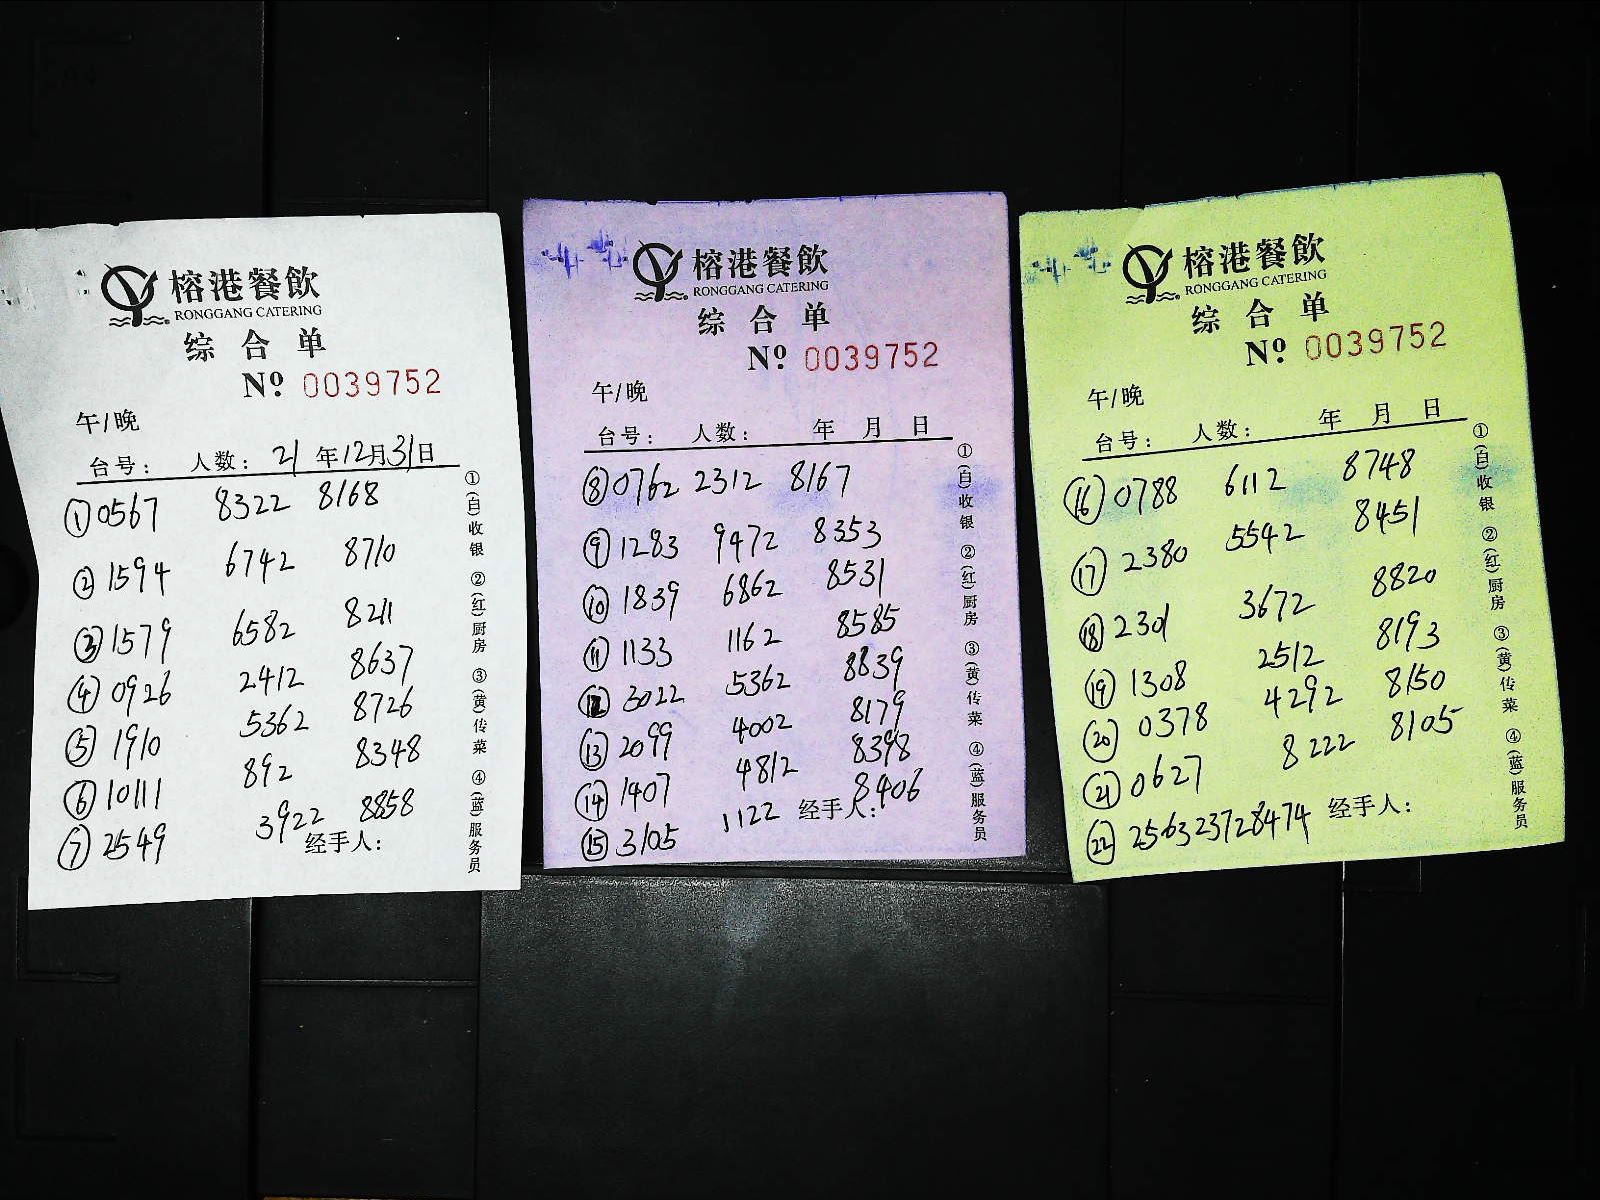 榕港餐飲
RONGGANG CATERING
综合单
Nº 0039752
午/晚
台号： 人数： 21年12月31日
①0567 8322 8168
②1594 6742 8710
③1579 6582 8211
④0926 2412 8637
⑤1910 5362 8726
⑥10111 892 8348
⑦2549 3922 8858
经手人：
①(白)收银 ②(红)厨房 ③(黄)传菜 ④(蓝)服务员
榕港餐飲
RONGGANG CATERING
综合单
Nº 0039752
午/晚
台号： 人数： 年 月 日
⑧0762 2312 8167
⑨1283 9472 8353
⑩1839 6862 8531
⑪1133 1162 8585
⑫3022 5362 8839
⑬2099 4002 8179
⑭1407 4812 8398
⑮3105 1122 8406
经手人：
①(白)收银 ②(红)厨房 ③(黄)传菜 ④(蓝)服务员
榕港餐飲
RONGGANG CATERING
综合单
Nº 0039752
午/晚
台号： 人数： 年 月 日
⑯0788 6112 8748
⑰2380 5542 8451
⑱2301 3672 8820
⑲1308 2512 8193
⑳0378 4292 8150
㉑0627 8222 8105
㉒256323728474 经手人：
①(白)收银 ②(红)厨房 ③(黄)传菜 ④(蓝)服务员